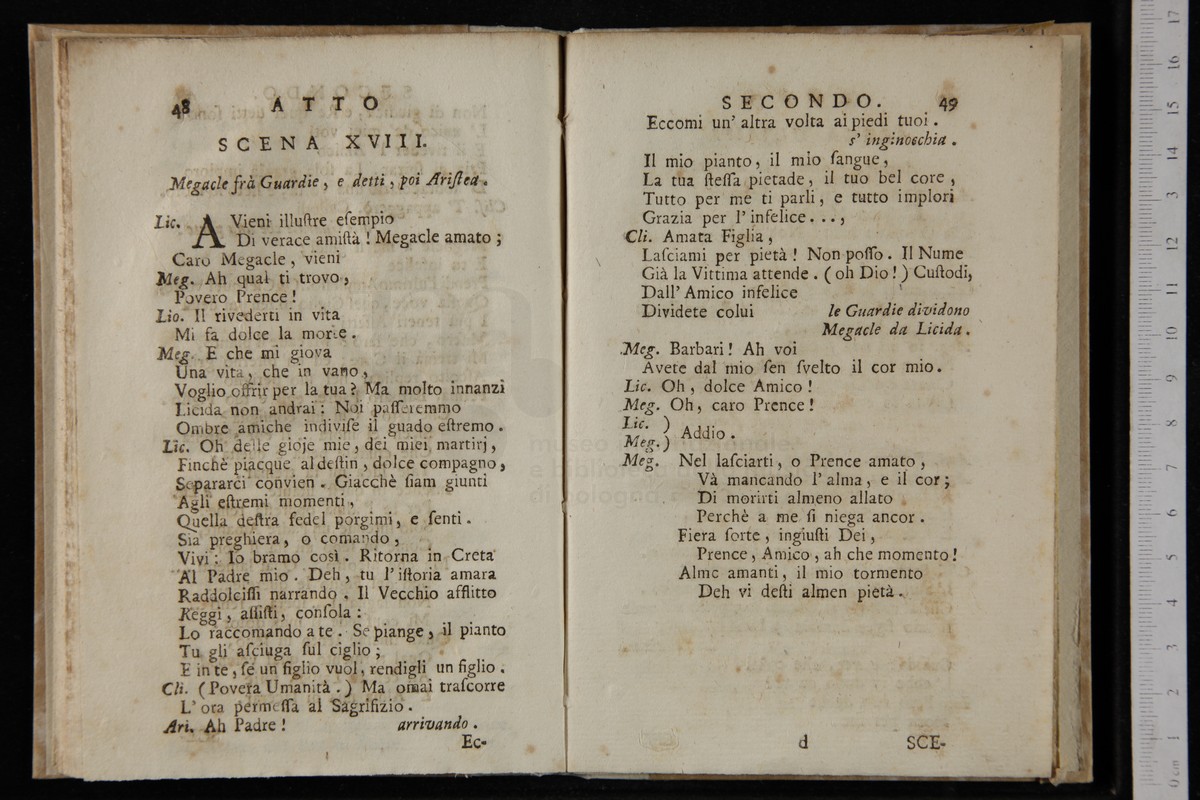 48 ATTO
SCENA XVIII.
Megacle frà Guardie, e detti, poi Ariſtea.
Lic. AVieni illuſtre eſempio
Di verace amiſtà! Megacle amato;
Caro Megacle, vieni
Meg. Ah qual ti trovo,
Povero Prence!
Lio. Il rivederti in vita
Mi fa dolce la morte.
Meg. E che mi giova
Una vita, che in vano,
Voglio offrir per la tua? Ma molto innanzi
Licida non andrai: Noi paſſeremmo
Ombre amiche indiviſe il guado eſtremo.
Lic. Oh delle gioje mie, dei miei martirj,
Finchè piacque al deſtin, dolce compagno,
Separarci convien. Giacchè ſiam giunti
Agli eſtremi momenti,
Quella deſtra fedel porgimi, e ſenti.
Sia preghiera, o comando,
Vivi: Io bramo così. Ritorna in Creta
Al Padre mio. Deh, tu l'iſtoria amara
Raddolciſſi narrando. Il Vecchio afflitto
Reggi, aſſiſti, conſola:
Lo raccomando a te. Se piange, il pianto
Tu gli aſciuga ſul ciglio;
E in te, ſe un figlio vuol, rendigli un figlio.
Cli. (Povera Umanità.) Ma omai traſcorre
L'ora permeſſa al Sagrifizio.
Ari. Ah Padre! arrivando.
Ec-
SECONDO. 49
Eccomi un' altra volta ai piedi tuoi.
s' inginocchia.
Il mio pianto, il mio ſangue,
La tua ſteſſa pietade, il tuo bel core,
Tutto per me ti parli, e tutto implori
Grazia per l'infelice...,
Cli. Amata Figlia,
Laſciami per pietà! Non poſſo. Il Nume
Già la Vittima attende. (oh Dio!) Cuſtodi,
Dall' Amico infelice
Dividete colui le Guardie dividono
Megacle da Licida.
Meg. Barbari! Ah voi
Avete dal mio ſen ſvelto il cor mio.
Lic. Oh, dolce Amico!
Meg. Oh, caro Prence!
Lic. )
Meg.) Addio.
Meg. Nel laſciarti, o Prence amato,
Và mancando l'alma, e il cor;
Di morirti almeno allato
Perchè a me ſi niega ancor.
Fiera ſorte, ingiuſti Dei,
Prence, Amico, ah che momento!
Alme amanti, il mio tormento
Deh vi deſti almen pietà.
d SCE-
museo
e biblioteca
di bologna
0 cm 1 2 3 4 5 6 7 8 9 10 11 12 13 14 15 16 17